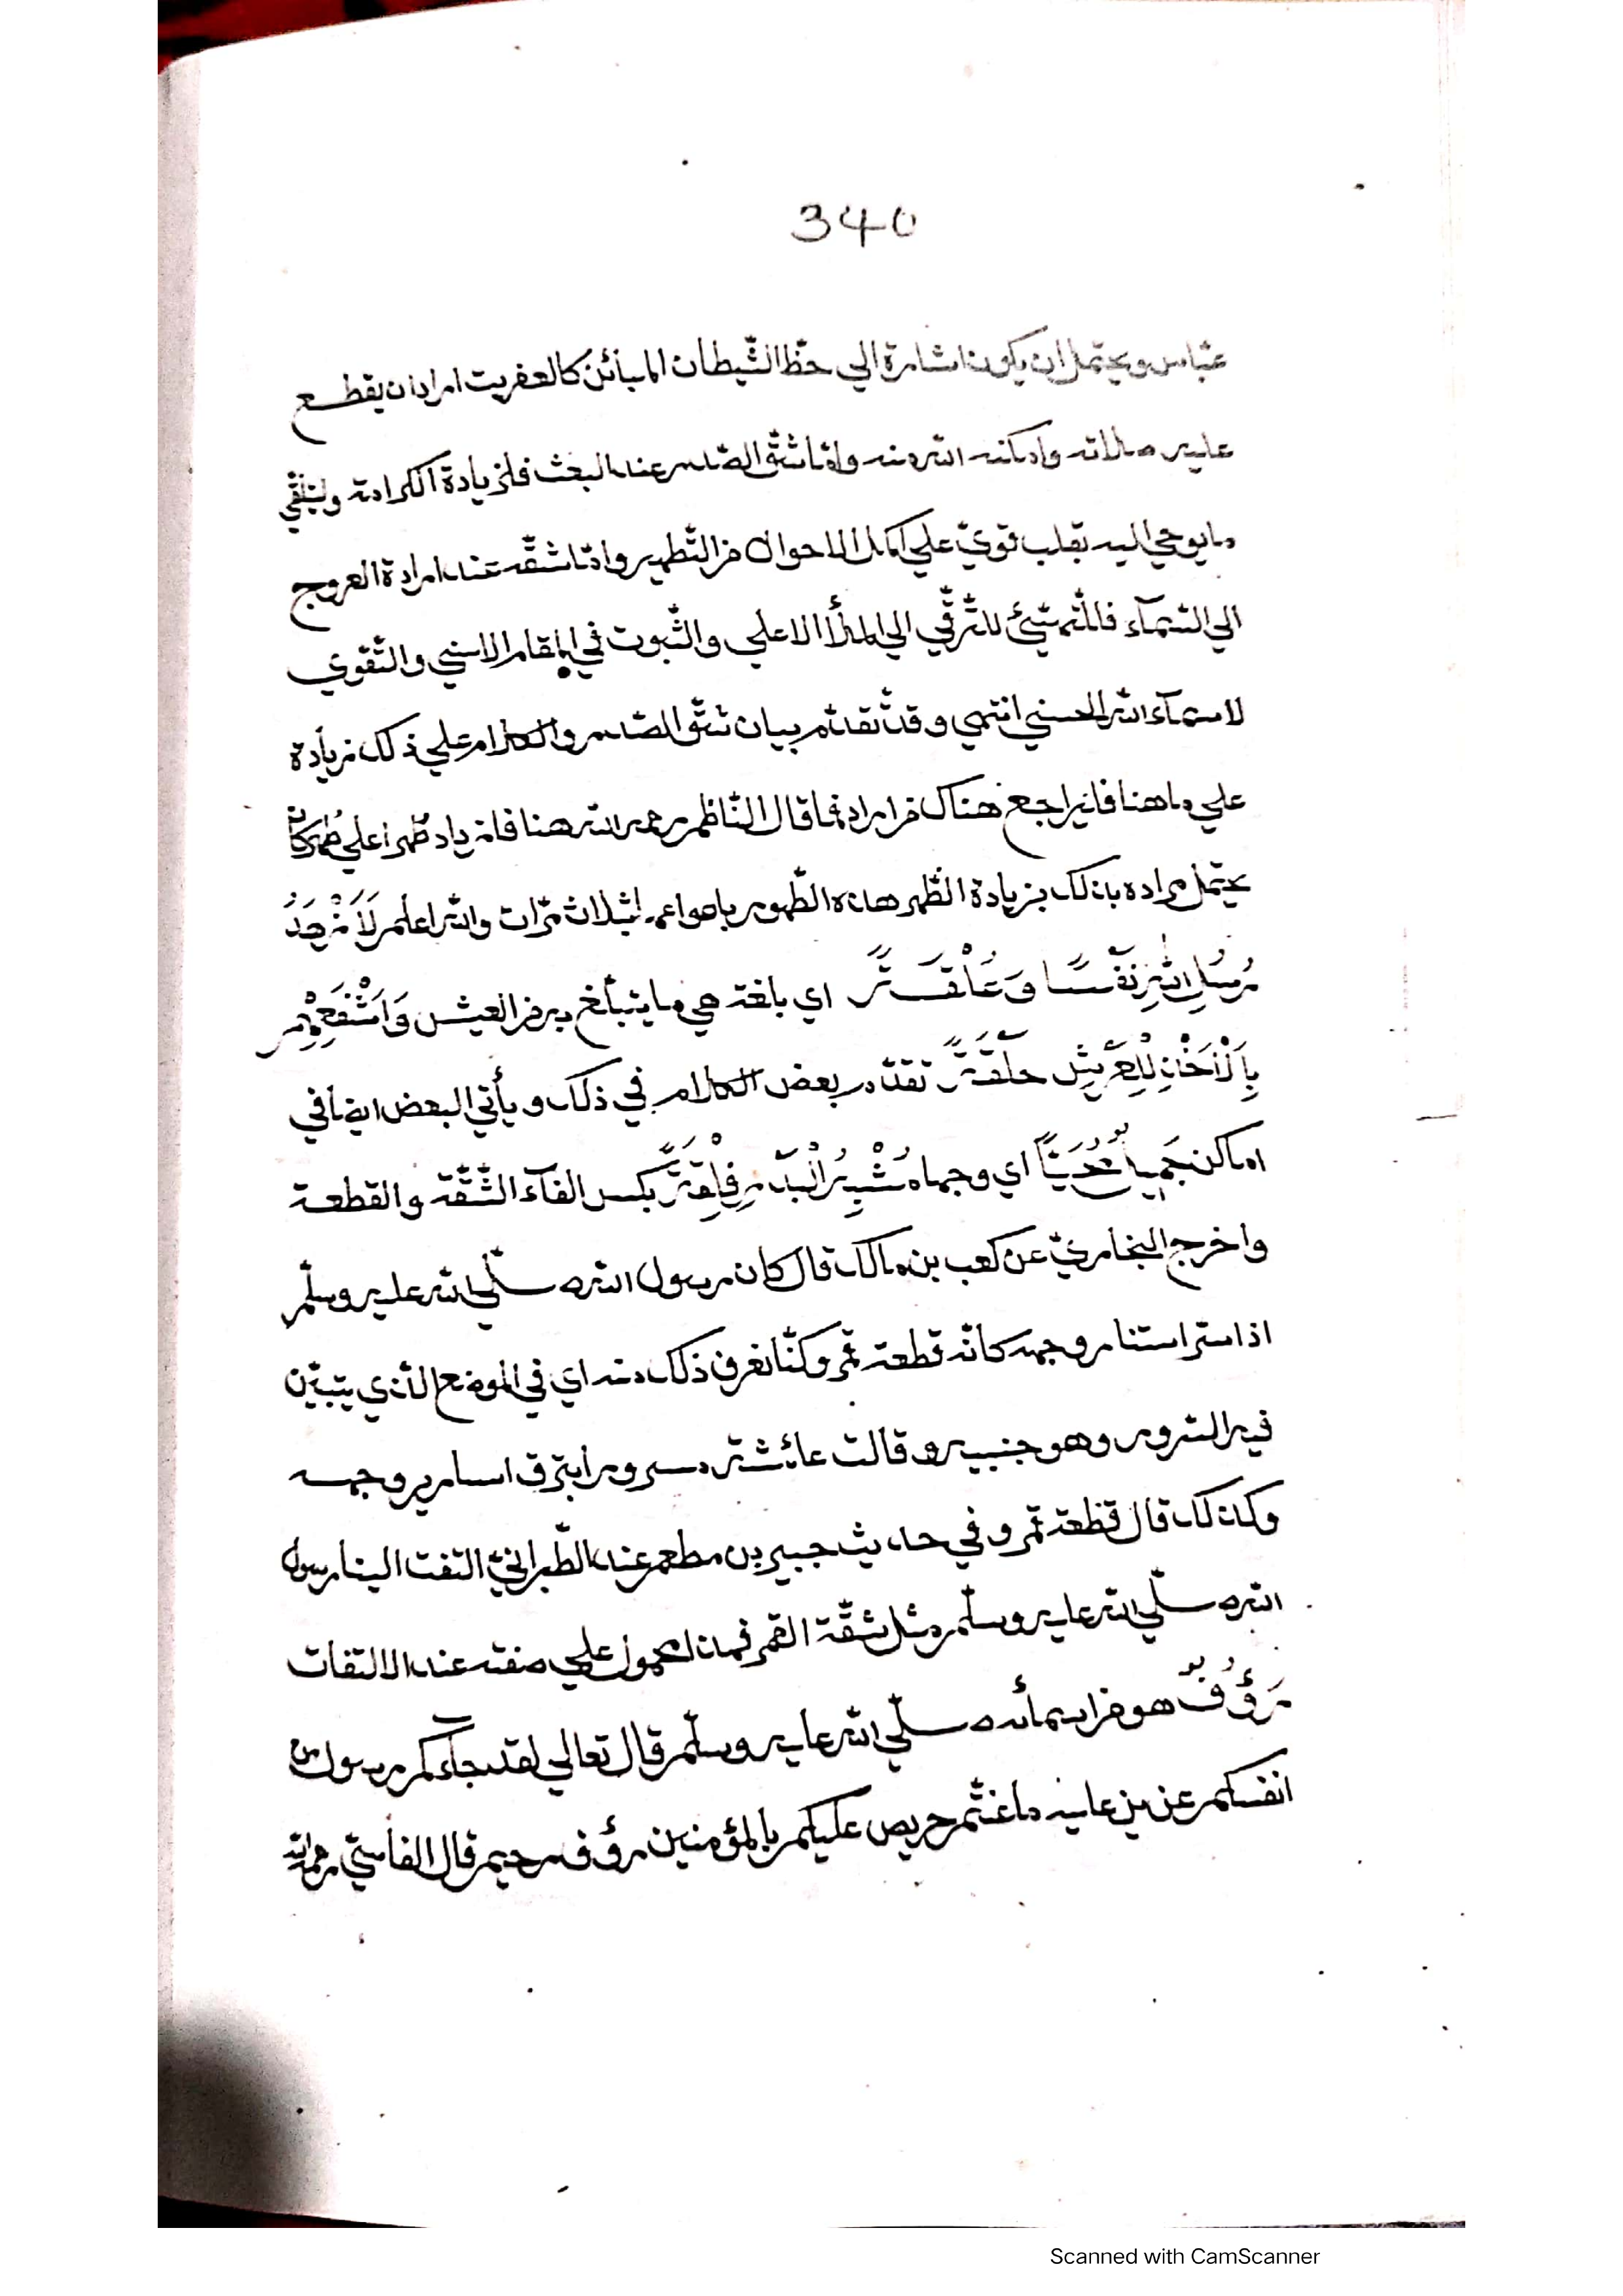 340
عبّاس ويحتمل ان يكون اشارة الي حظّ الشّيطان المبائن كالعفريت اراد ان يقطع
عليه صلاته وامكنه الله منه وامّا شقّ الصّدر عند البعث فلزيادة الكرامة وليتلقّي
ما يوحي اليه بقلب قويّ علي اكمل الاحوال من التّطهير وامّا شقّه عند ارادة العروج
الي السّمآء فللتّهيّئ للتّرقّي الي الملأ الاعلي والثّبوت في المقام الاسني والتّقوي
لاسمآء الله الحسني انتهي وقد تقدّم بيان شقّ الصّدر والكلام علي ذلك زيادة
علي ما هنا فليراجع هناك من اراده فما قال النّاظم رحمه الله هنا فازداد طهرا علي طهر كان
يحتمل مراده بذلك بزيادة الطّهر هذه الطّهور باصواعه ثلاث مرّات والله اعلم
رُسُلِ اللهِ نَفْسًا وَعُلْقَةً اي بلغة هي ما يتبلّغ به من العيش وَاَشْفَعِهِمْ
لِلْعَرِيشِ حَلْقَةً تقدّم بعض الكلام في ذلك ويأتي البعض ايضا في
اماكن جَمِيل مُحَيًّا اي وجهاه مُشْبِهُ الْبَدْرِ فِلْقَةً بكسر الفآء الشّقّة والقطعة
واخرج البخاريّ عن كعب بن مالك قال كان رسول الله صلّي الله عليه وسلّم
اذا سرّ استنار وجهه كانّه قطعة قمر وكنّا نعرف ذلك منه اي في الموضع الّذي يتبيّن
فيه السّرور وهو جنبيه وقالت عائشة مسرورا تبرق اسارير وجهه
وكذلك قال قطعة قمر وفي حديث جبير بن مطعم عند الطّبرانيّ التفت الينا رسول
الله صلّي الله عليه وسلّم مثل شقّة القمر فهذا محمول علي صفته عند الالتفات
رَؤُفٌ هو من اسمائه صلّي الله عليه وسلّم قال تعالي لقد جآءكم رسول من
انفسكم عزيز عليه ما عنتّم حريص عليكم بالمؤمنين رؤف رحيم قال الفاسيّ رحمه الله
Scanned with CamScanner